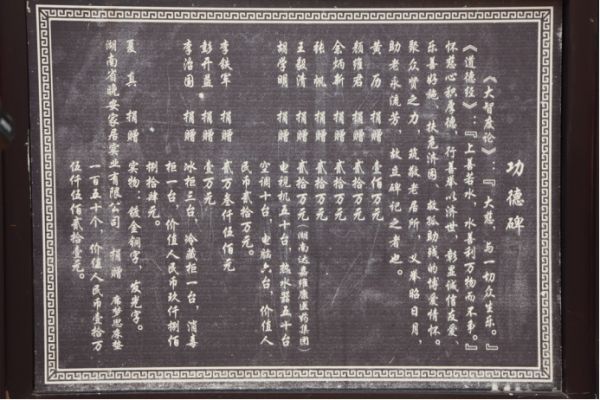 功德碑
《大智度论》：『大慈，与一切众生乐。』
《道德经》：『上善若水，水善利万物而不争。』
怀慈心积厚德，行善举以济世，彰显诚信友爱、
乐善好施、扶危济困、救孤助残的博爱情怀。
聚众贤之力，筑敬老居所，义举昭日月，
助老永流芳，故立碑记之者也。
黄历 捐赠 壹佰万元
颜维君 捐赠 贰拾万元
金炳新 捐赠 贰拾万元
张帆 捐赠 贰拾万元
王毅清 捐赠 贰拾万元（湖南达嘉维康医药集团）
胡学明 捐赠 电视机五十台，热水器五十台
空调十台，电脑六台，价值人
民币贰拾万元。
李铁军 捐赠 贰万叁仟伍佰元
彭开益 捐赠 壹万元
李治国 捐赠 冰柜三台，冷藏柜一台，消毒
柜一台，价值人民币玖仟捌佰
捌拾肆元。
夏真 捐赠 实物：镀金铜字，发光字。
湖南省晚安家居实业有限公司 捐赠 席梦思床垫
一百五十个，价值人民币壹拾万
伍仟伍佰贰拾壹元。